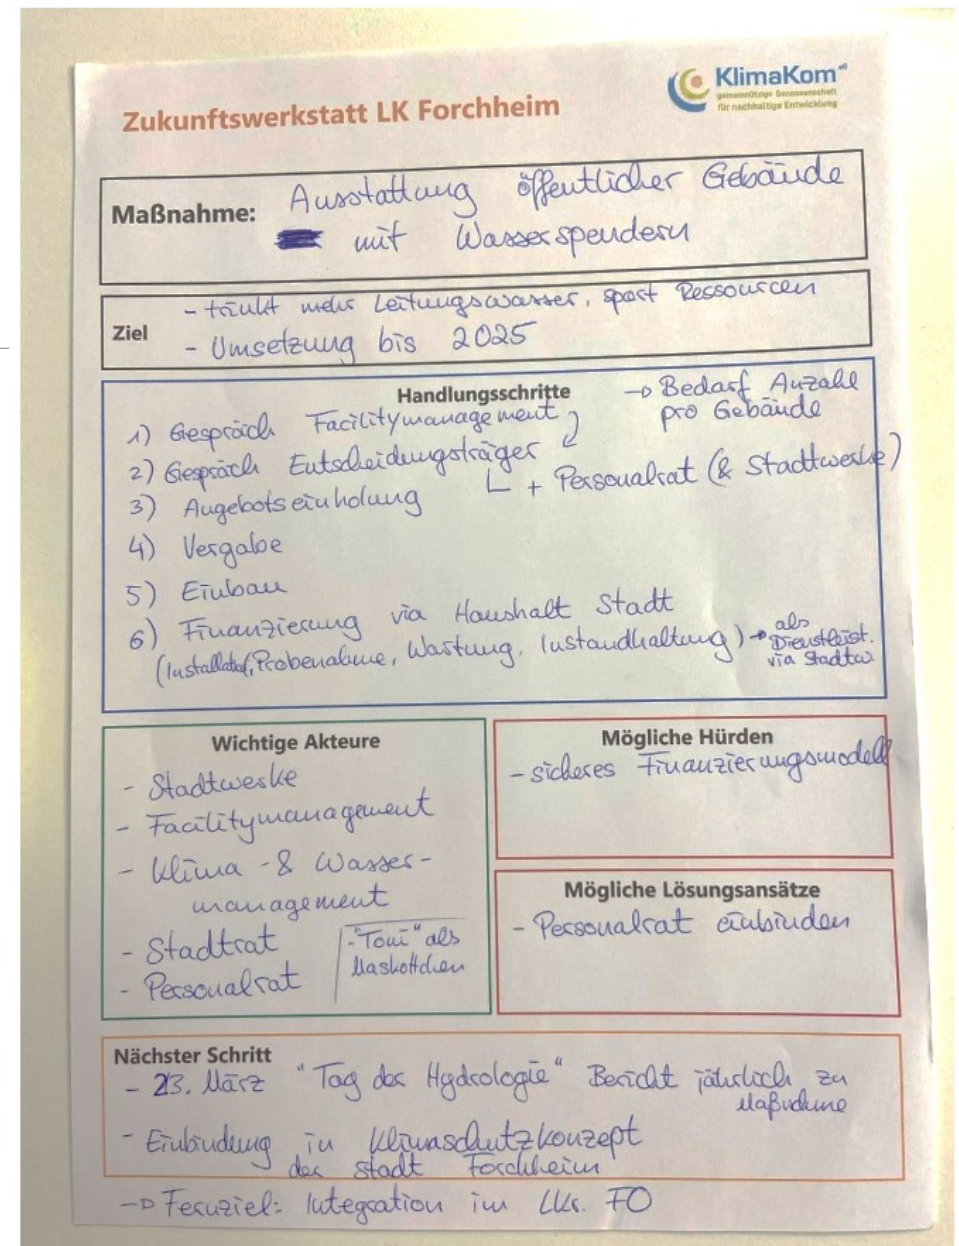 KlimaKom eG
gemeinnützige Genossenschaft
für nachhaltige Entwicklung
Zukunftswerkstatt LK Forchheim
Maßnahme: Ausstattung öffentlicher Gebäude
mit Wasserspendern
Ziel
- trinkt mehr Leitungswasser, spart Ressourcen
- Umsetzung bis 2025
Handlungsschritte
→ Bedarf Anzahl
pro Gebäude
1) Gespräch Facilitymanagement
2) Gespräch Entscheidungsträger
+ Personalrat (& Stadtwerke)
3) Angebotseinholung
4) Vergabe
5) Einbau
6) Finanzierung via Haushalt Stadt
(Installation, Probenahme, Wartung, Instandhaltung) → als
Dienstleist.
via Stadtw.
Wichtige Akteure
- Stadtwerke
- Facilitymanagement
- Klima - & Wasser-
management
- Stadtrat
- Personalrat
- "Toni" als
Maskottchen
Mögliche Hürden
- sicheres Finanzierungsmodell
Mögliche Lösungsansätze
- Personalrat einbinden
Nächster Schritt
- 23. März "Tag der Hydrologie" Bericht jährlich zu
Maßnahme
- Einbindung in Klimaschutzkonzept
der Stadt Forchheim
→ Fernziel: Integration im LKr. FO